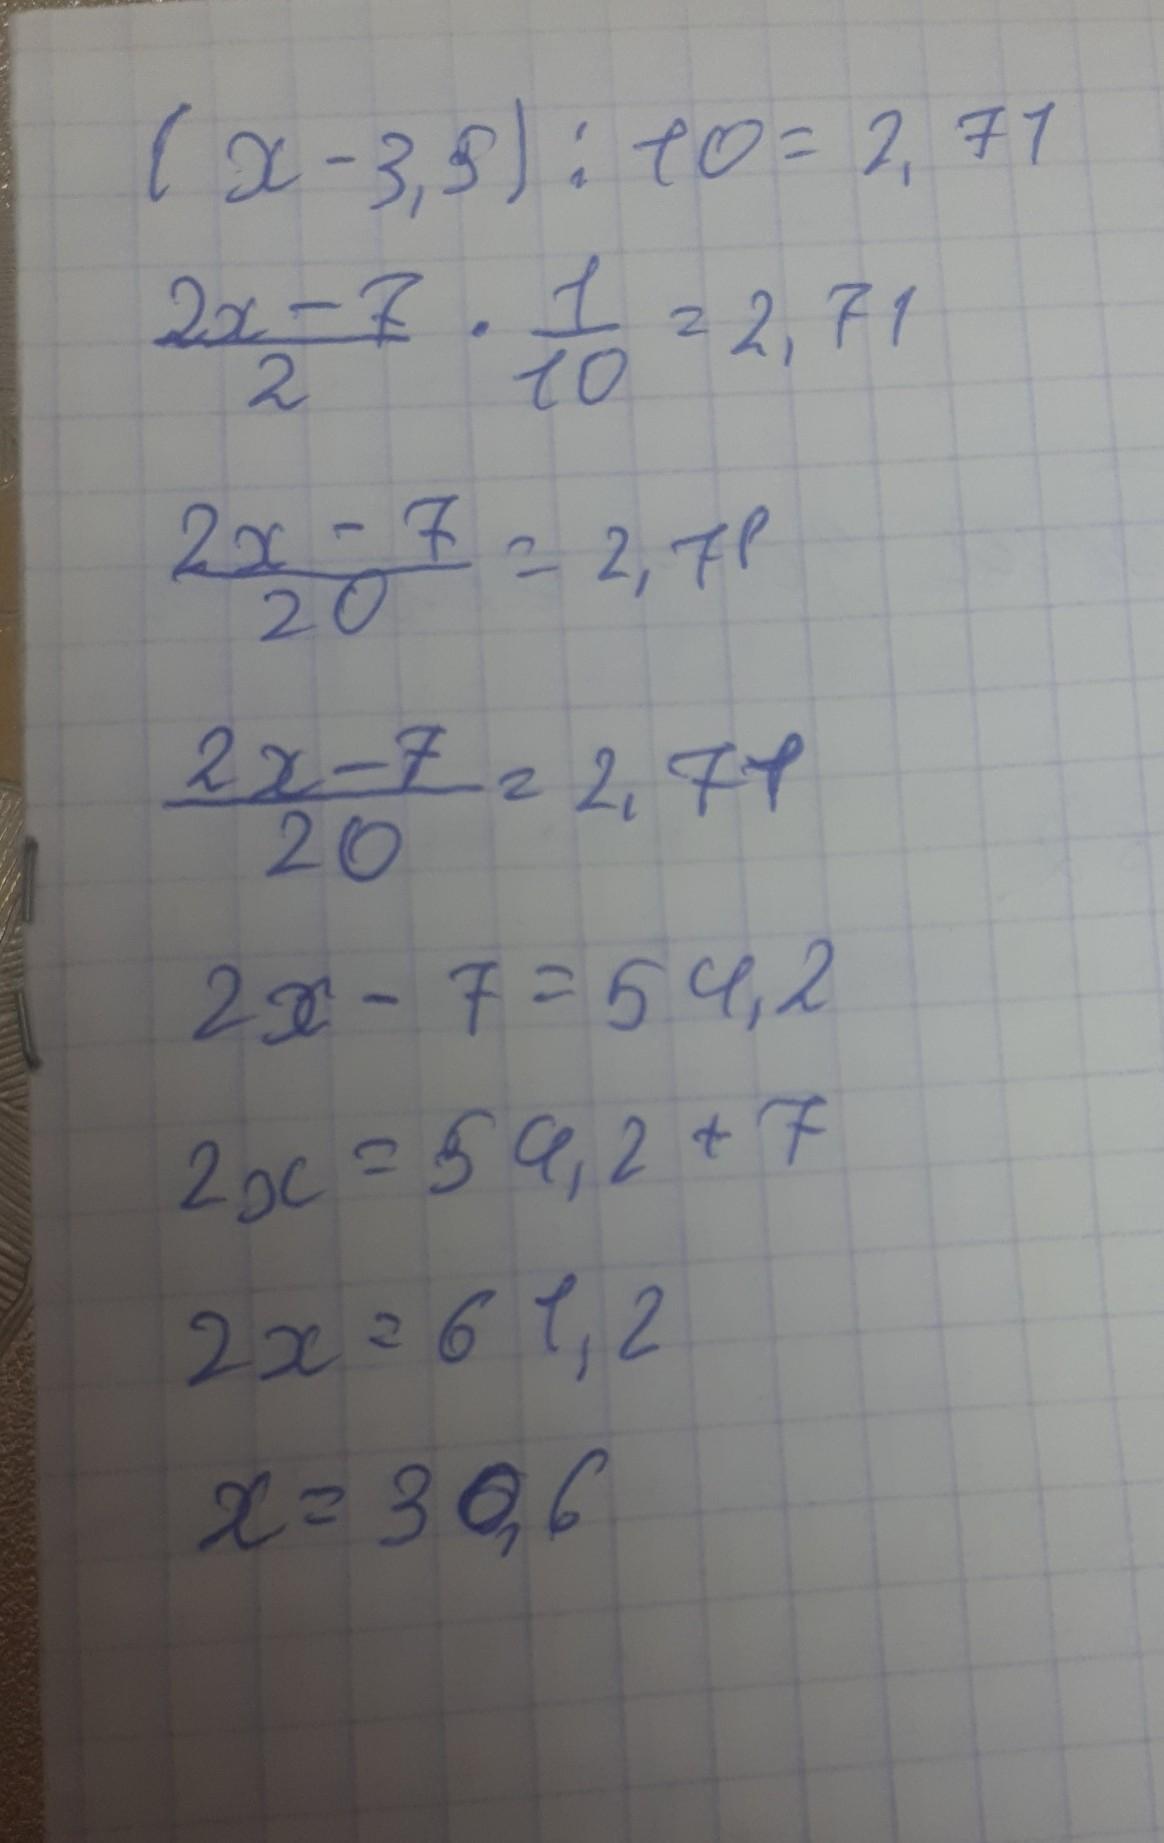 (x - 3,5) : 10 = 2,71
(2x - 7)/2 · 1/10 = 2,71
(2x - 7)/20 = 2,71
(2x - 7)/20 = 2,71
2x - 7 = 54,2
2x = 54,2 + 7
2x = 61,2
x = 30,6